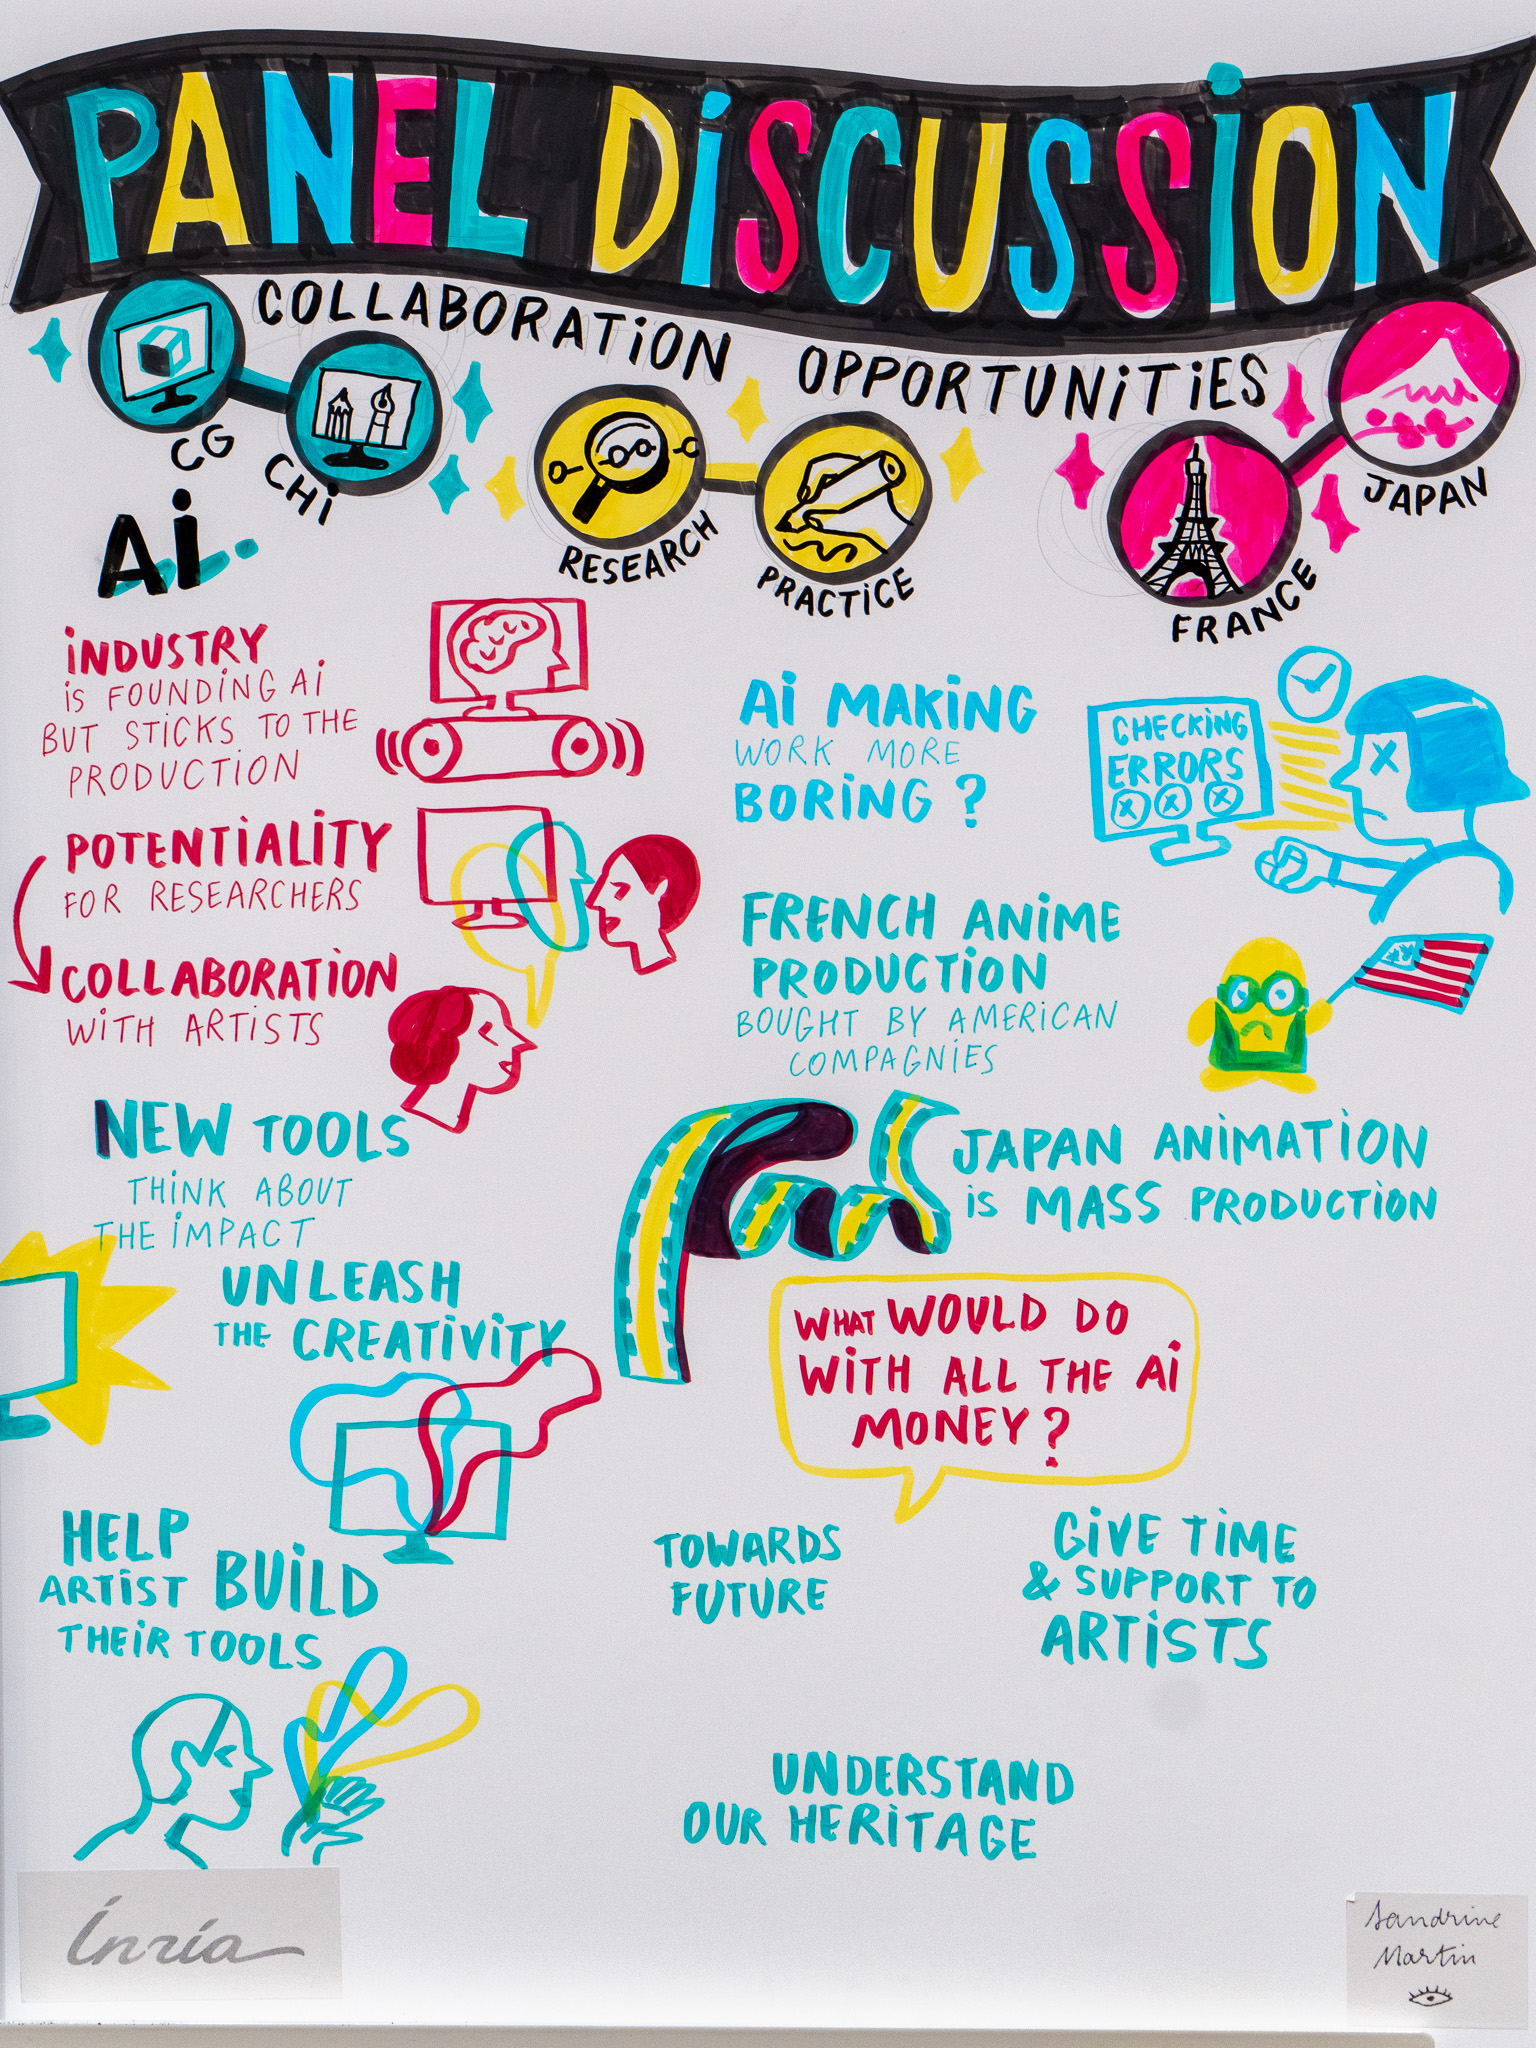 PANEL DISCUSSION
COLLABORATION OPPORTUNITIES
CG
CHI
RESEARCH
PRACTICE
FRANCE
JAPAN
Ai.
INDUSTRY
is FOUNDING Ai
BUT STICKS TO THE
PRODUCTION
POTENTIALITY
FOR RESEARCHERS
COLLABORATION
WITH ARTISTS
NEW TOOLS
THINK ABOUT
THE IMPACT
UNLEASH
THE CREATIVITY
HELP
ARTIST BUILD
THEIR TOOLS
Ai MAKING
WORK MORE
BORING ?
CHECKING
ERRORS
FRENCH ANIME
PRODUCTION
BOUGHT BY AMERICAN
COMPAGNIES
JAPAN ANIMATION
is MASS PRODUCTION
WHAT WOULD DO
WITH ALL THE Ai
MONEY ?
TOWARDS
FUTURE
GIVE TIME
& SUPPORT TO
ARTISTS
UNDERSTAND
OUR HERITAGE
Inria
Sandrine
Martin